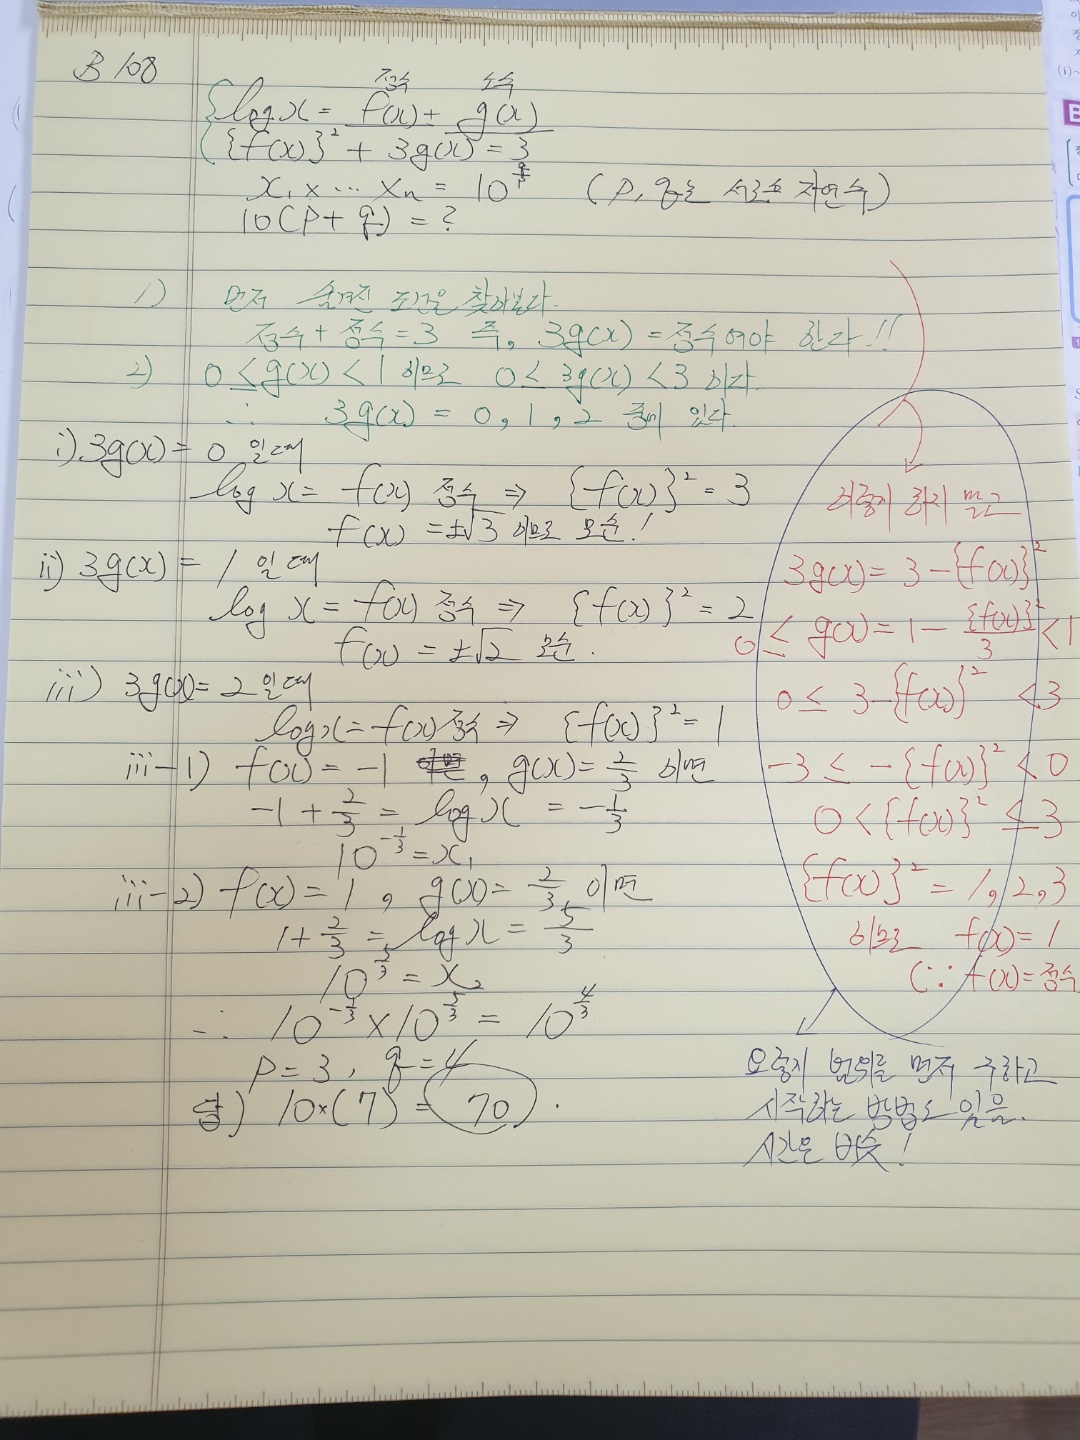 B 108
정수 소수
log x = f(x) + g(x)
{f(x)}² + 3g(x) = 3
x₁ × … xₙ = 10^(q/p) (p, q는 서로소 자연수)
10(p+q) = ?
1) 먼저 숨겨진 조건을 찾아보다.
정수 + 정수 = 3 즉, 3g(x) = 정수여야 한다!!
2) 0 ≤ g(x) < 1 이므로 0 ≤ 3g(x) < 3 이다.
∴ 3g(x) = 0, 1, 2 중에 있다.
i) 3g(x) = 0 일때
log x = f(x) 정수 ⇒ {f(x)}² = 3
f(x) = ±√3 이므로 모순!
ii) 3g(x) = 1 일때
log x = f(x) 정수 ⇒ {f(x)}² = 2
f(x) = ±√2 모순.
iii) 3g(x) = 2 일때
log x = f(x) 정수 ⇒ {f(x)}² = 1
iii-1) f(x) = -1 , g(x) = 2/3 이면
-1 + 2/3 = log x = -1/3
10^(-1/3) = x₁
iii-2) f(x) = 1 , g(x) = 2/3 이면
1 + 2/3 = log x = 5/3
10^(5/3) = x₂
∴ 10^(-1/3) × 10^(5/3) = 10^(4/3)
p = 3, q = 4
답) 10×(7) = 70.
이렇게 하지 말고
3g(x) = 3 - {f(x)}²
0 ≤ g(x) = 1 - {f(x)}²/3 < 1
0 ≤ 3 - {f(x)}² < 3
-3 ≤ -{f(x)}² < 0
0 < {f(x)}² ≤ 3
{f(x)}² = 1, 2, 3
이므로 f(x) = 1
(∵ f(x) = 정수
요렇게 범위를 먼저 구하고
시작하는 방법도 있음.
시간은 비슷!